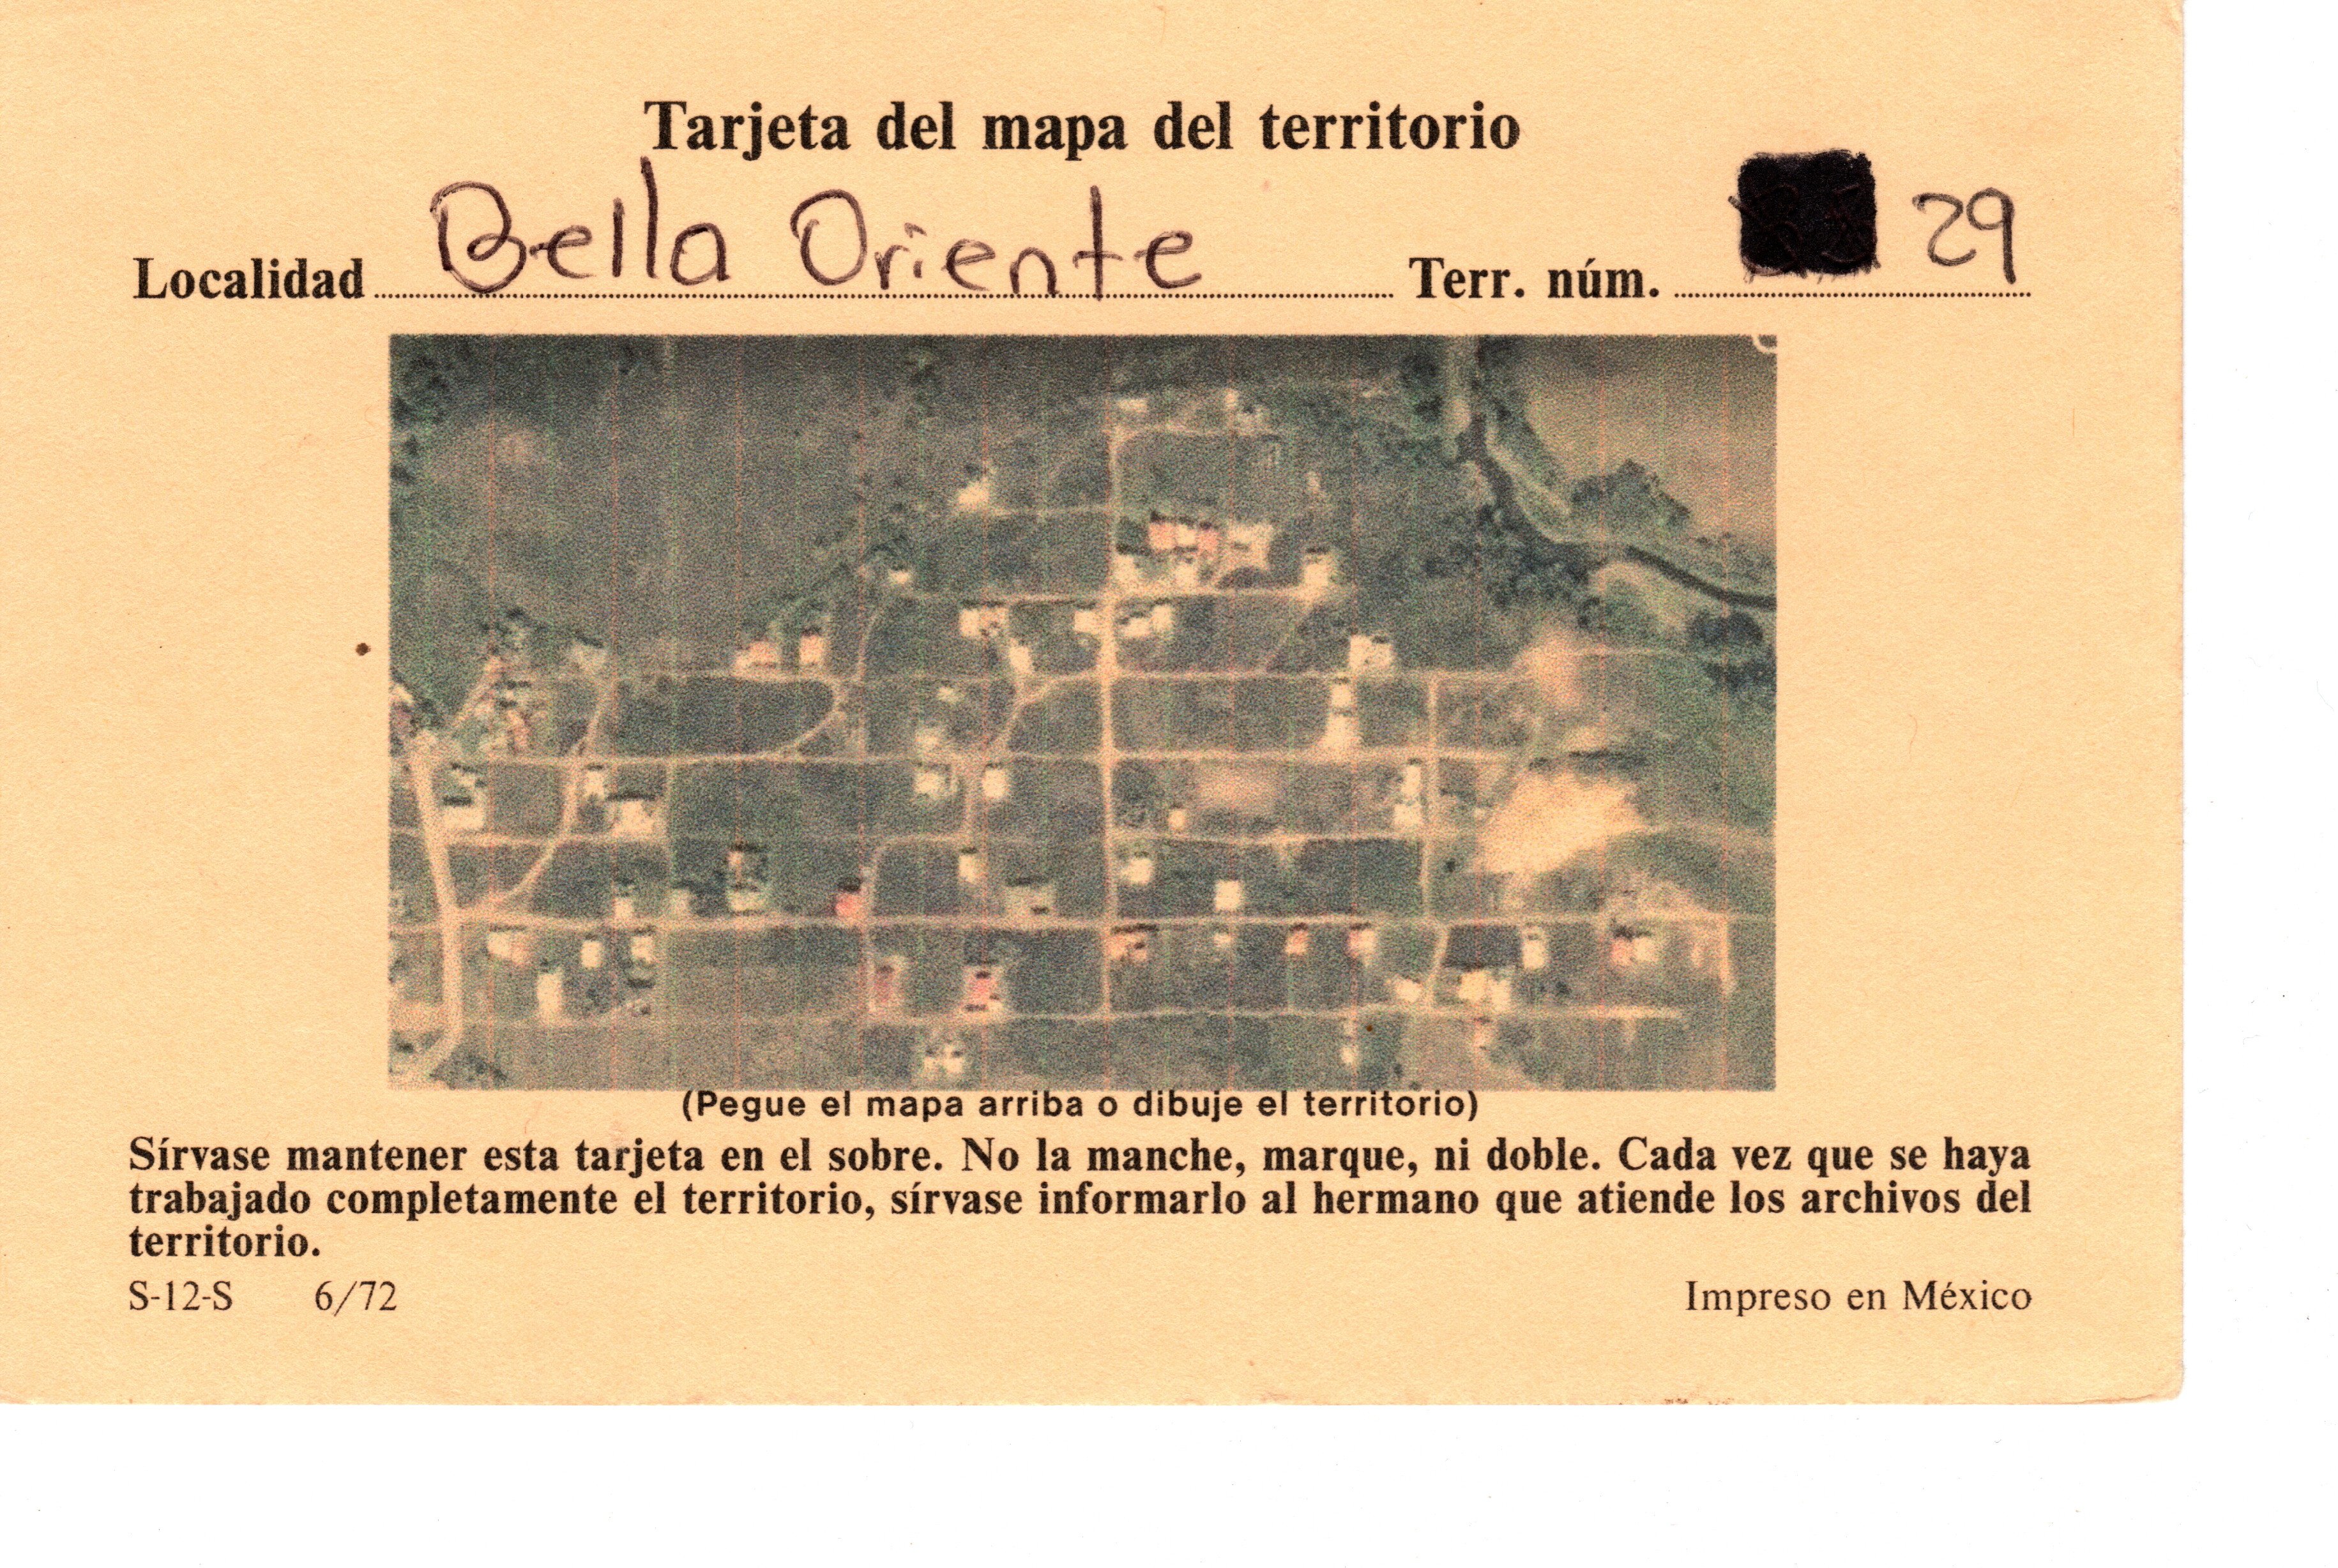 Tarjeta del mapa del territorio
Localidad Bella Oriente Terr. núm. 29
(Pegue el mapa arriba o dibuje el territorio)
Sírvase mantener esta tarjeta en el sobre. No la manche, marque, ni doble. Cada vez que se haya
trabajado completamente el territorio, sírvase informarlo al hermano que atiende los archivos del
territorio.
S-12-S 6/72 Impreso en México